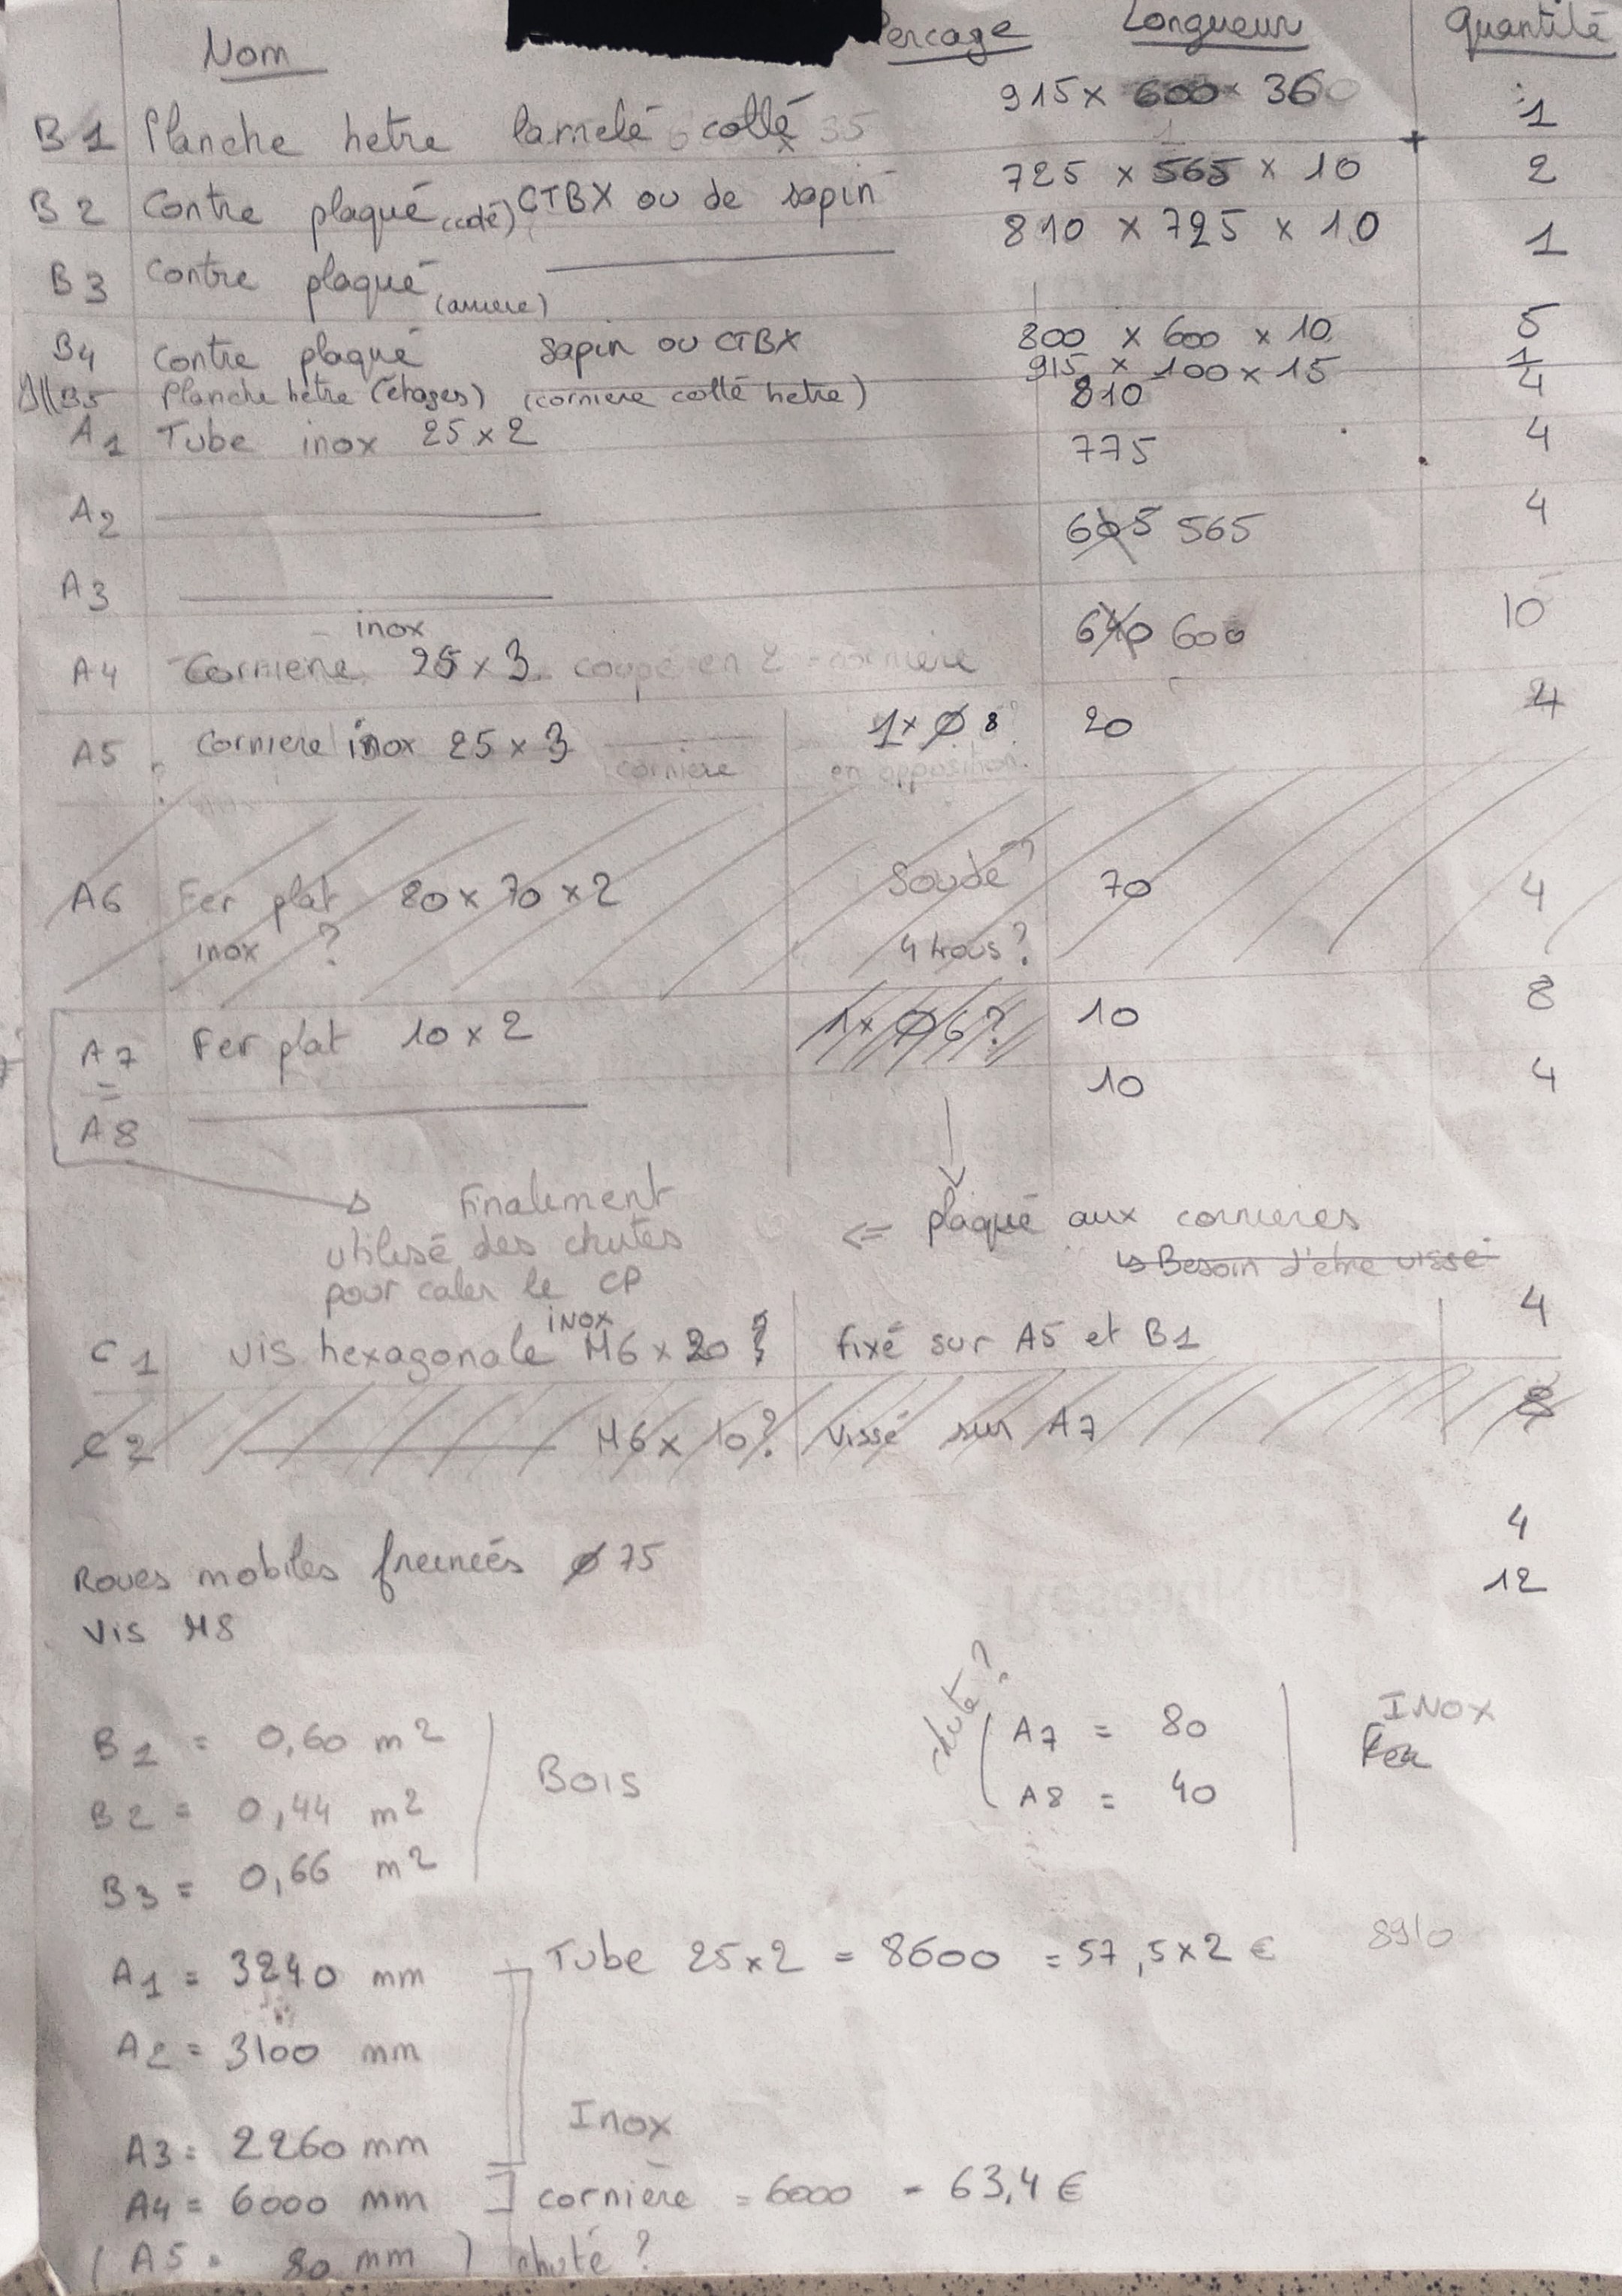 Nom Percage Longueur Quantité
B1 Planche hetre lamelé collé 915 x 600 x 36 1
B2 Contre plaqué (coté) CTBX ou de sapin 725 x 565 x 10 2
B3 Contre plaqué (arriere) 810 x 725 x 10 1
B4 Contre plaqué Sapin ou CTBX 800 x 600 x 10 5
B5 Planche hetre (étages) (corniere collé hetre) 915 x 100 x 15 1
A1 Tube inox 25 x 2 810 4
A2 775 4
A3 605 565 4
A4 Corniere inox 25 x 3 coupé en 2 corniere 640 600 10
A5 corniere inox 25 x 3 1x Ø 8 20 4
corniere en opposition
A6 Fer plat 80 x 70 x 2 Soudé? 70 4
inox ? 4 trous?
A7 Fer plat 10 x 2 1x Ø 6? 10 8
=
A8 10 4
Finalement
utilisé des chutes
pour caler le CP
<= plaqué aux cornieres
↳ Besoin d'etre vissé
C1 vis hexagonale inox M6 x 20 ? fixé sur A5 et B1 4
C2 M6 x 10? Vissé sur A7 8
Roues mobiles freinées Ø 75 4
Vis M8 12
B1 = 0,60 m2
B2 = 0,44 m2 Bois
B3 = 0,66 m2
chute?
A7 = 80 INOX
A8 = 40
A1 = 3240 mm Tube 25x2 = 8600 = 57,5x2 € 8910
A2 = 3100 mm
Inox
A3 = 2260 mm
A4 = 6000 mm ] cornière = 6000 - 63,4 €
( A5 = 80 mm ) chute ?